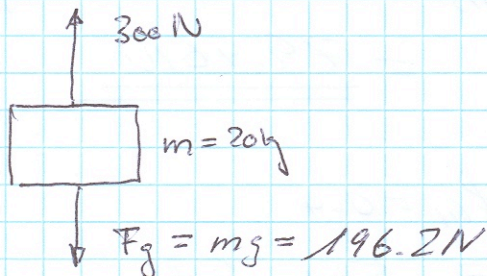 300 N
m = 20 kg
Fg = mg = 196.2 N